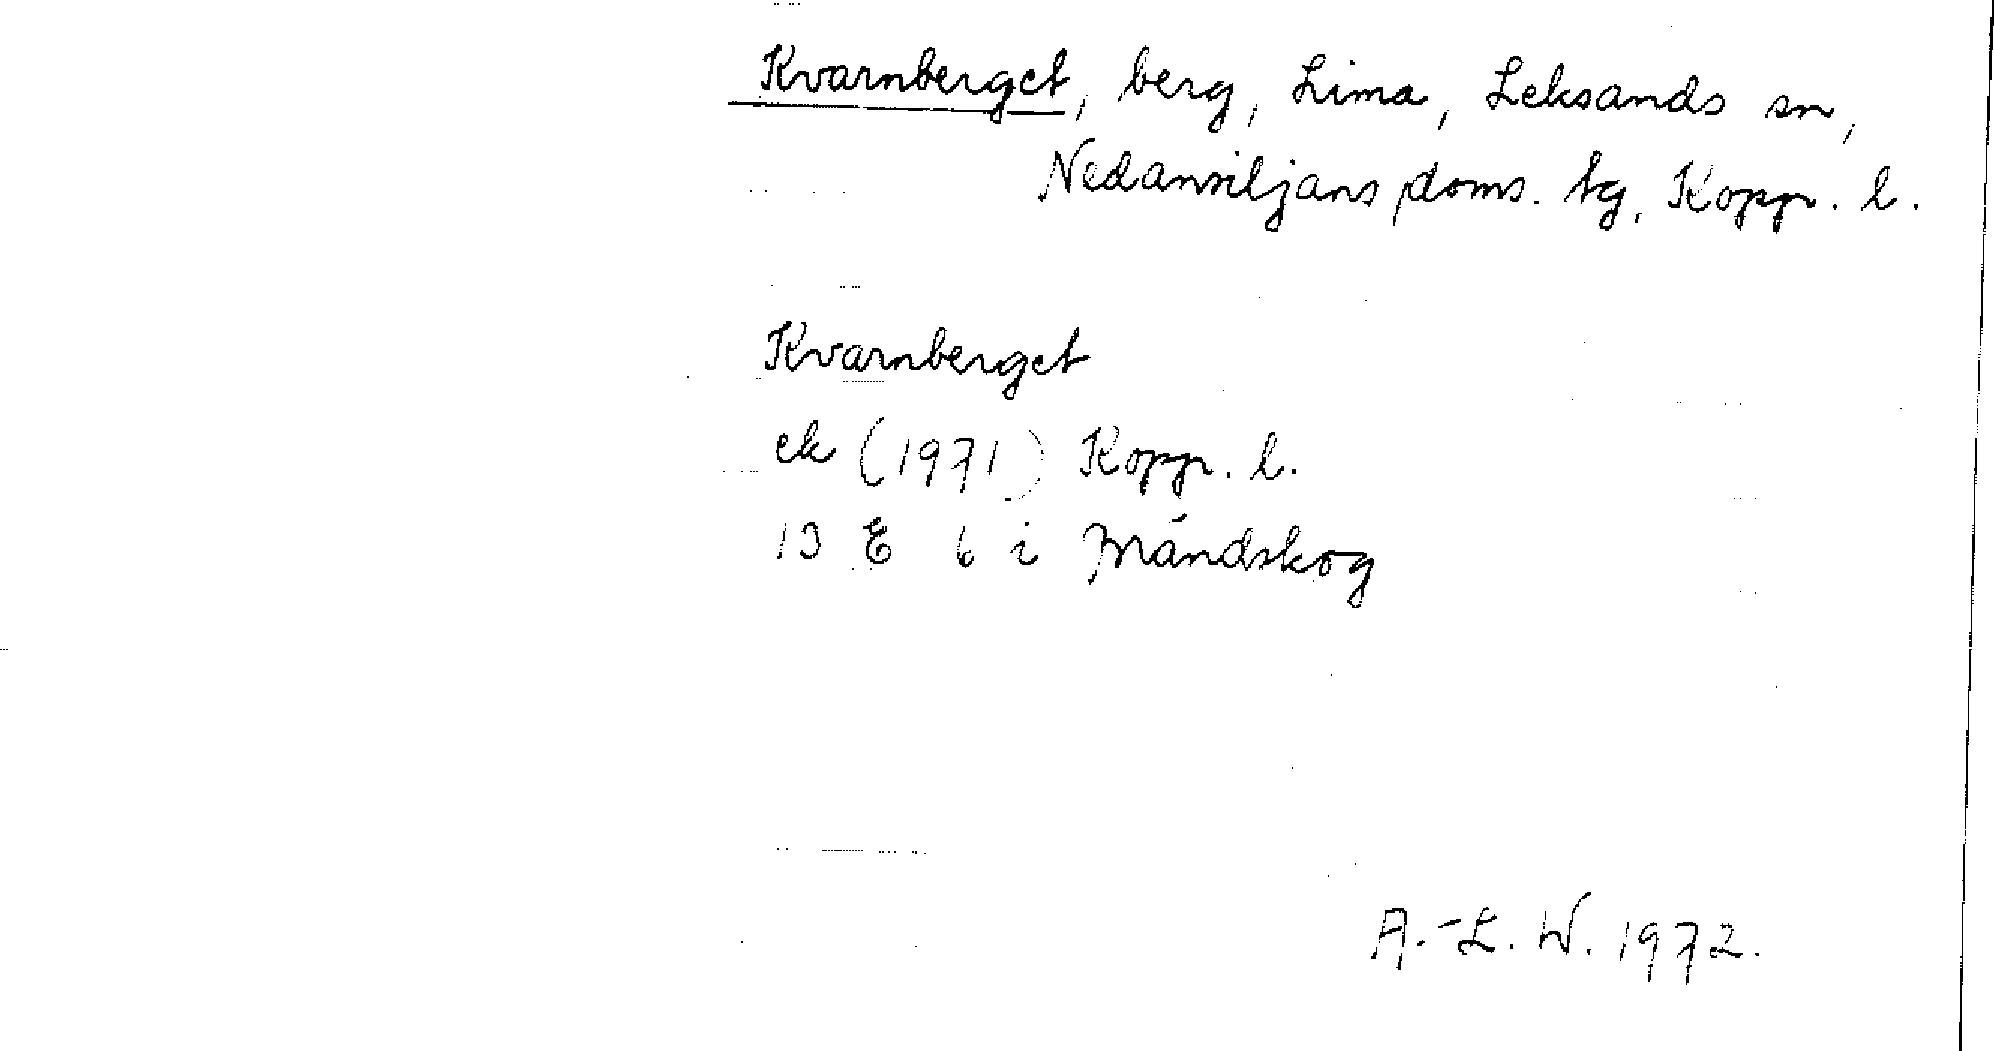 Kvarnberget, berg, Lima, Leksands sn,
Nedansiljans doms. tg, Kopp. l.
Kvarnberget
ek (1971) Kopp. l.
13 E 6 i Mándskog
A.-L. W. 1972.